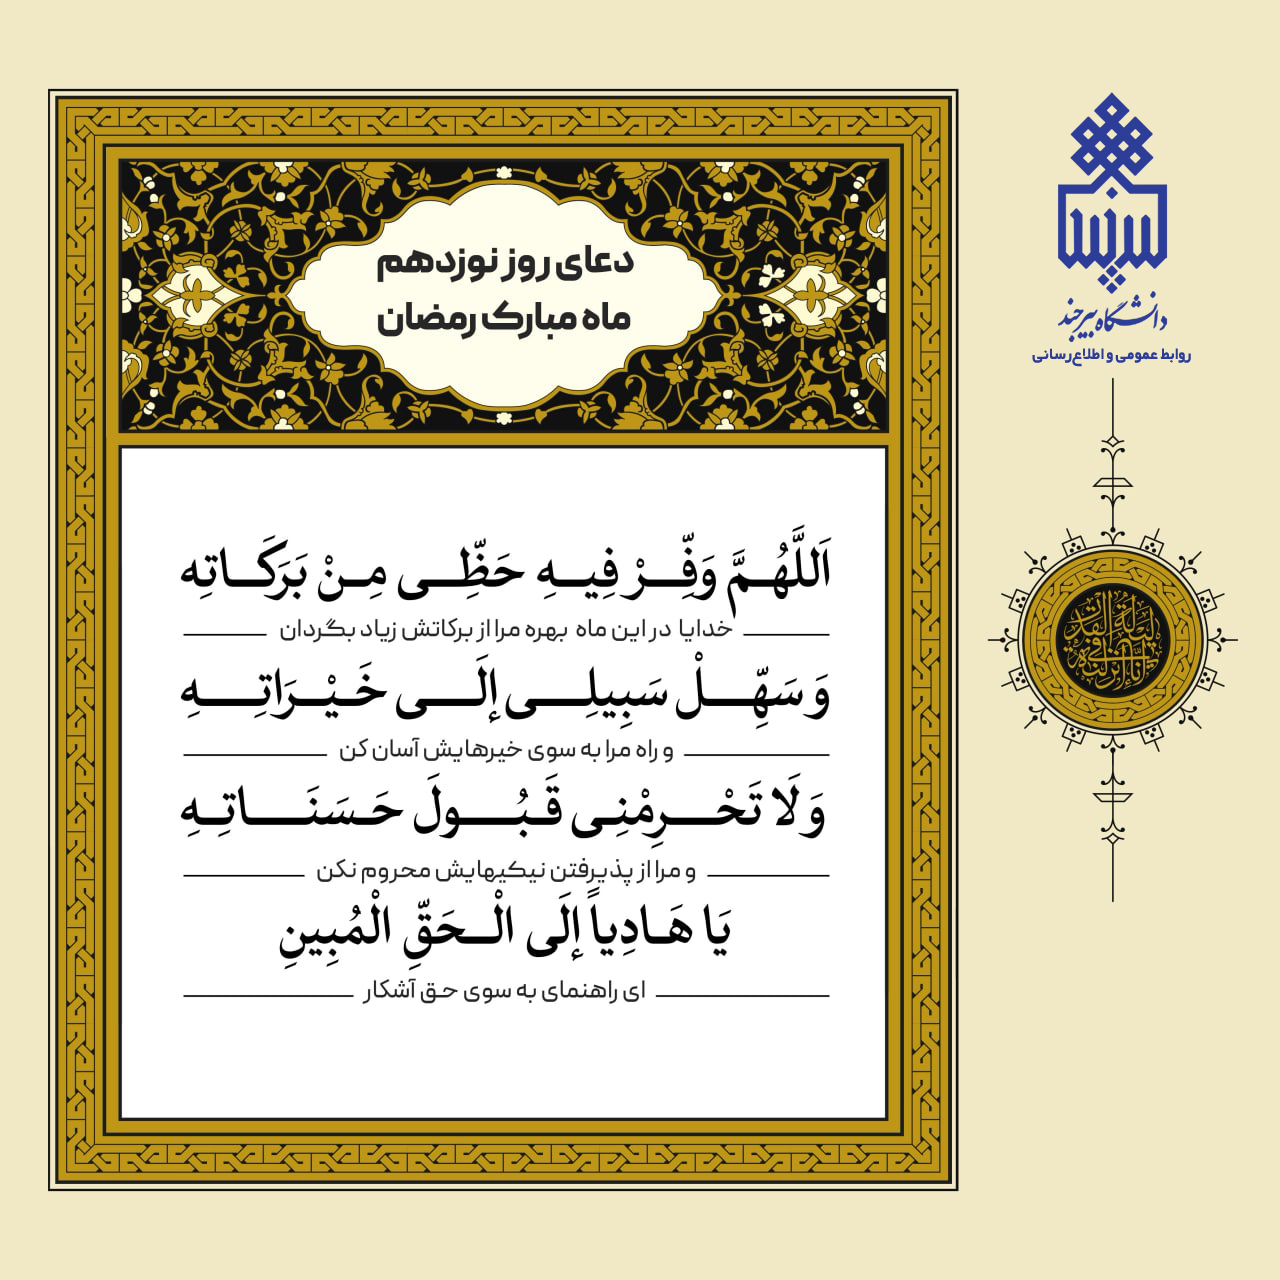 دعای روز نوزدهم
ماه مبارک رمضان
اَللَّهُمَّ وَفِّرْ فِيهِ حَظِّي مِنْ بَرَكَاتِهِ
خدایا در این ماه بهره مرا از برکاتش زیاد بگردان
وَ سَهِّلْ سَبِيلِي إِلَى خَيْرَاتِهِ
و راه مرا به سوی خیرهایش آسان کن
وَ لَا تَحْرِمْنِي قَبُولَ حَسَنَاتِهِ
و مرا از پذیرفتن نیکیهایش محروم نکن
يَا هَادِياً إِلَى الْحَقِّ الْمُبِينِ
ای راهنمای به سوی حق آشکار
دانشگاه بیرجند
روابط عمومی و اطلاع‌رسانی